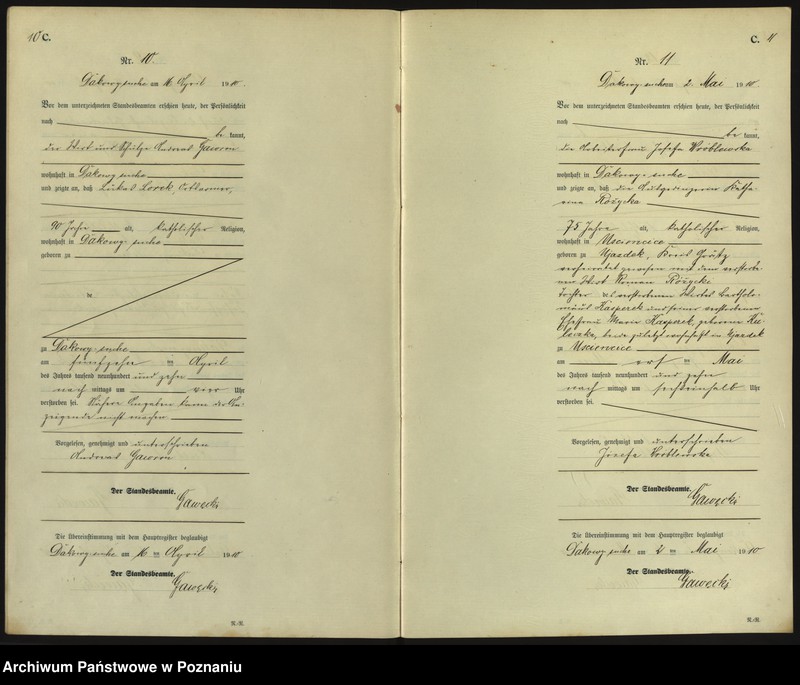 10 C.
Nr. 10.
Dakowy suche am 16 April 1910.
Vor dem unterzeichneten Standesbeamten erschien heute, der Persönlichkeit
nach
be kannt,
der Wirt und Schulze Andreas Gawron
wohnhaft in Dakowy suche
und zeigte an, daß Lukas Lorek, Ortsarmer,
90 Jahre alt, katholischer Religion,
wohnhaft in Dakowy suche
geboren zu
de
zu Dakowy suche
am fünfzehn ten April
des Jahres tausend neunhundert und zehn
nach mittags um vier Uhr
verstorben sei. Nähere Angaben kann der An-
zeigende nicht machen
Vorgelesen, genehmigt und unterschrieben
Andreas Gawron
Der Standesbeamte.
Gawecki
Die Übereinstimmung mit dem Hauptregister beglaubigt
Dakowy suche am 16 ten April 1910
Der Standesbeamte.
Gawecki
R.-R.
C. 11
Nr. 11
Dakowy suche am 2. Mai 1910.
Vor dem unterzeichneten Standesbeamten erschien heute, der Persönlichkeit
nach
be kannt,
die Arbeiterfrau Josefa Wróblewska
wohnhaft in Dakowy suche
und zeigte an, daß die Ausgedingerin Katha-
rina Rożycka
75 Jahre alt, katholischer Religion,
wohnhaft in Usciencice
geboren zu Ujazdek, Kreis Grätz
verheiratet gewesen mit dem verstorbe-
nen Wirt Roman Rożycki
Tochter des verstorbenen Wirtes Bartholo-
mäus Kasperek und seiner verstorbenen
Ehefrau Marie Kasperek, geborene
beide zuletzt wohnhaft in Ujazdek
zu Usciencice
am ersten Mai
des Jahres tausend neunhundert und zehn
nach mittags um sechseinhalb Uhr
verstorben sei.
Vorgelesen, genehmigt und unterschrieben
Józefa Wróblewska
Der Standesbeamte.
Gawecki
Die Übereinstimmung mit dem Hauptregister beglaubigt
Dakowy suche am 2 ten Mai 1910
Der Standesbeamte.
Gawecki
R.-R.
Archiwum Państwowe w Poznaniu